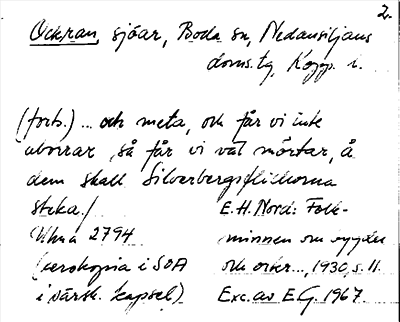 2.
Ockran, sjöar, Boda sn, Nedansiljans
doms.tg, Kopp. l.
(forts.) ... och meta, och får vi inte
aborrar, så får vi väl mörtar, å
dem skall Silverbergsflickorna
steka./ E.H. Nord: Folk-
Uhna 2794 minnen om bygder
(xerokopia i SOA och orter..., 1930, s. 11.
i värsk. kapsel) Exc. av E.G. 1967.